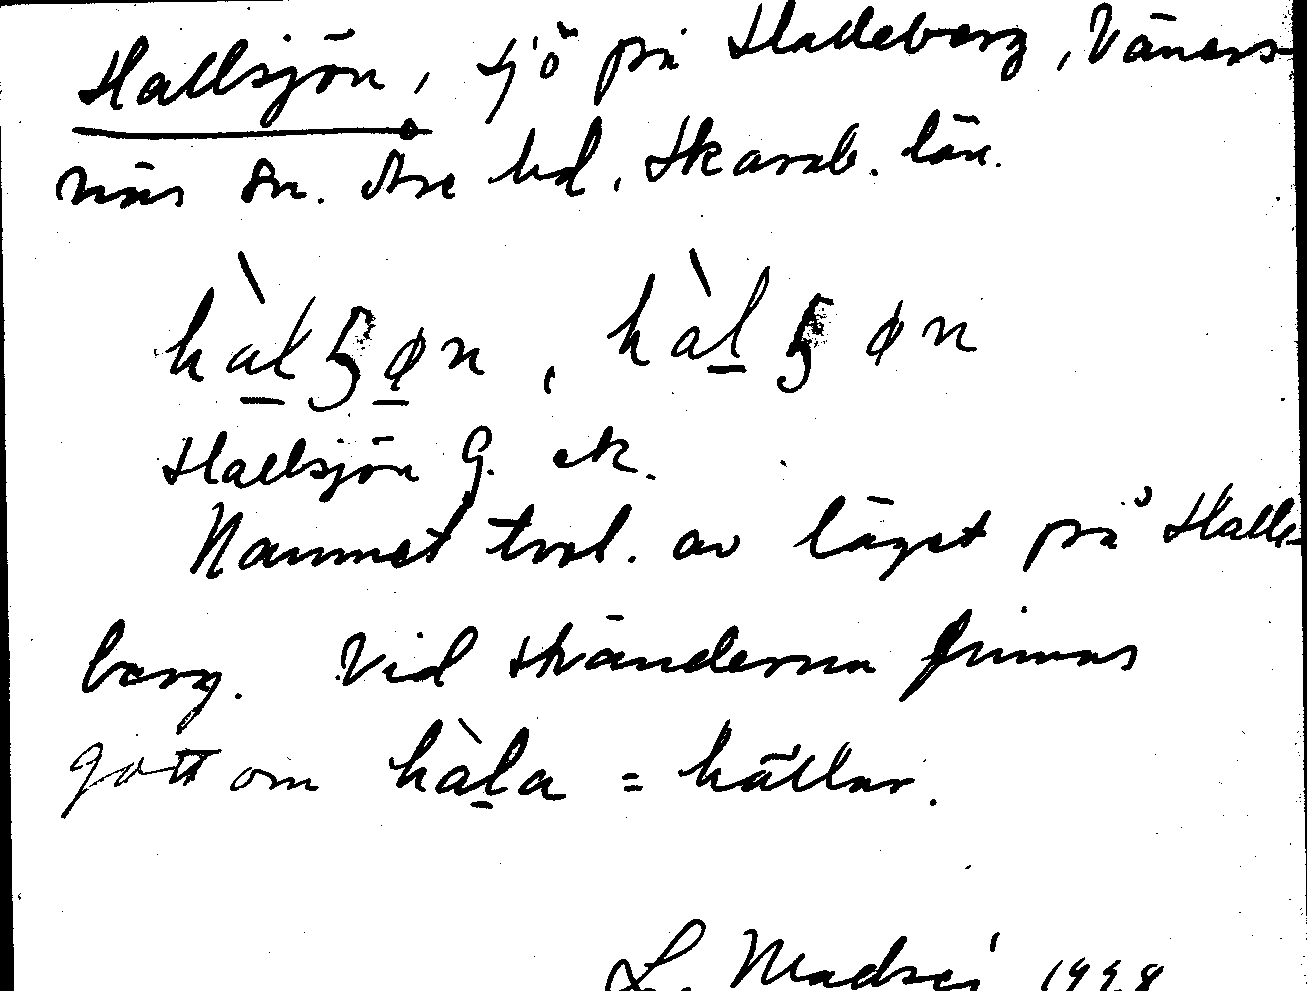 Hallsjön, sjö på Halleberg, Väners-
näs sn. Åse hd, Skarab. län.
hàlʒøn, hàlʒøn
Hallsjön G. ek.
Namnet trol. av läget på Halle-
berg. Vid stränderna finnas
gott om hàla = hällar.
L. 1928